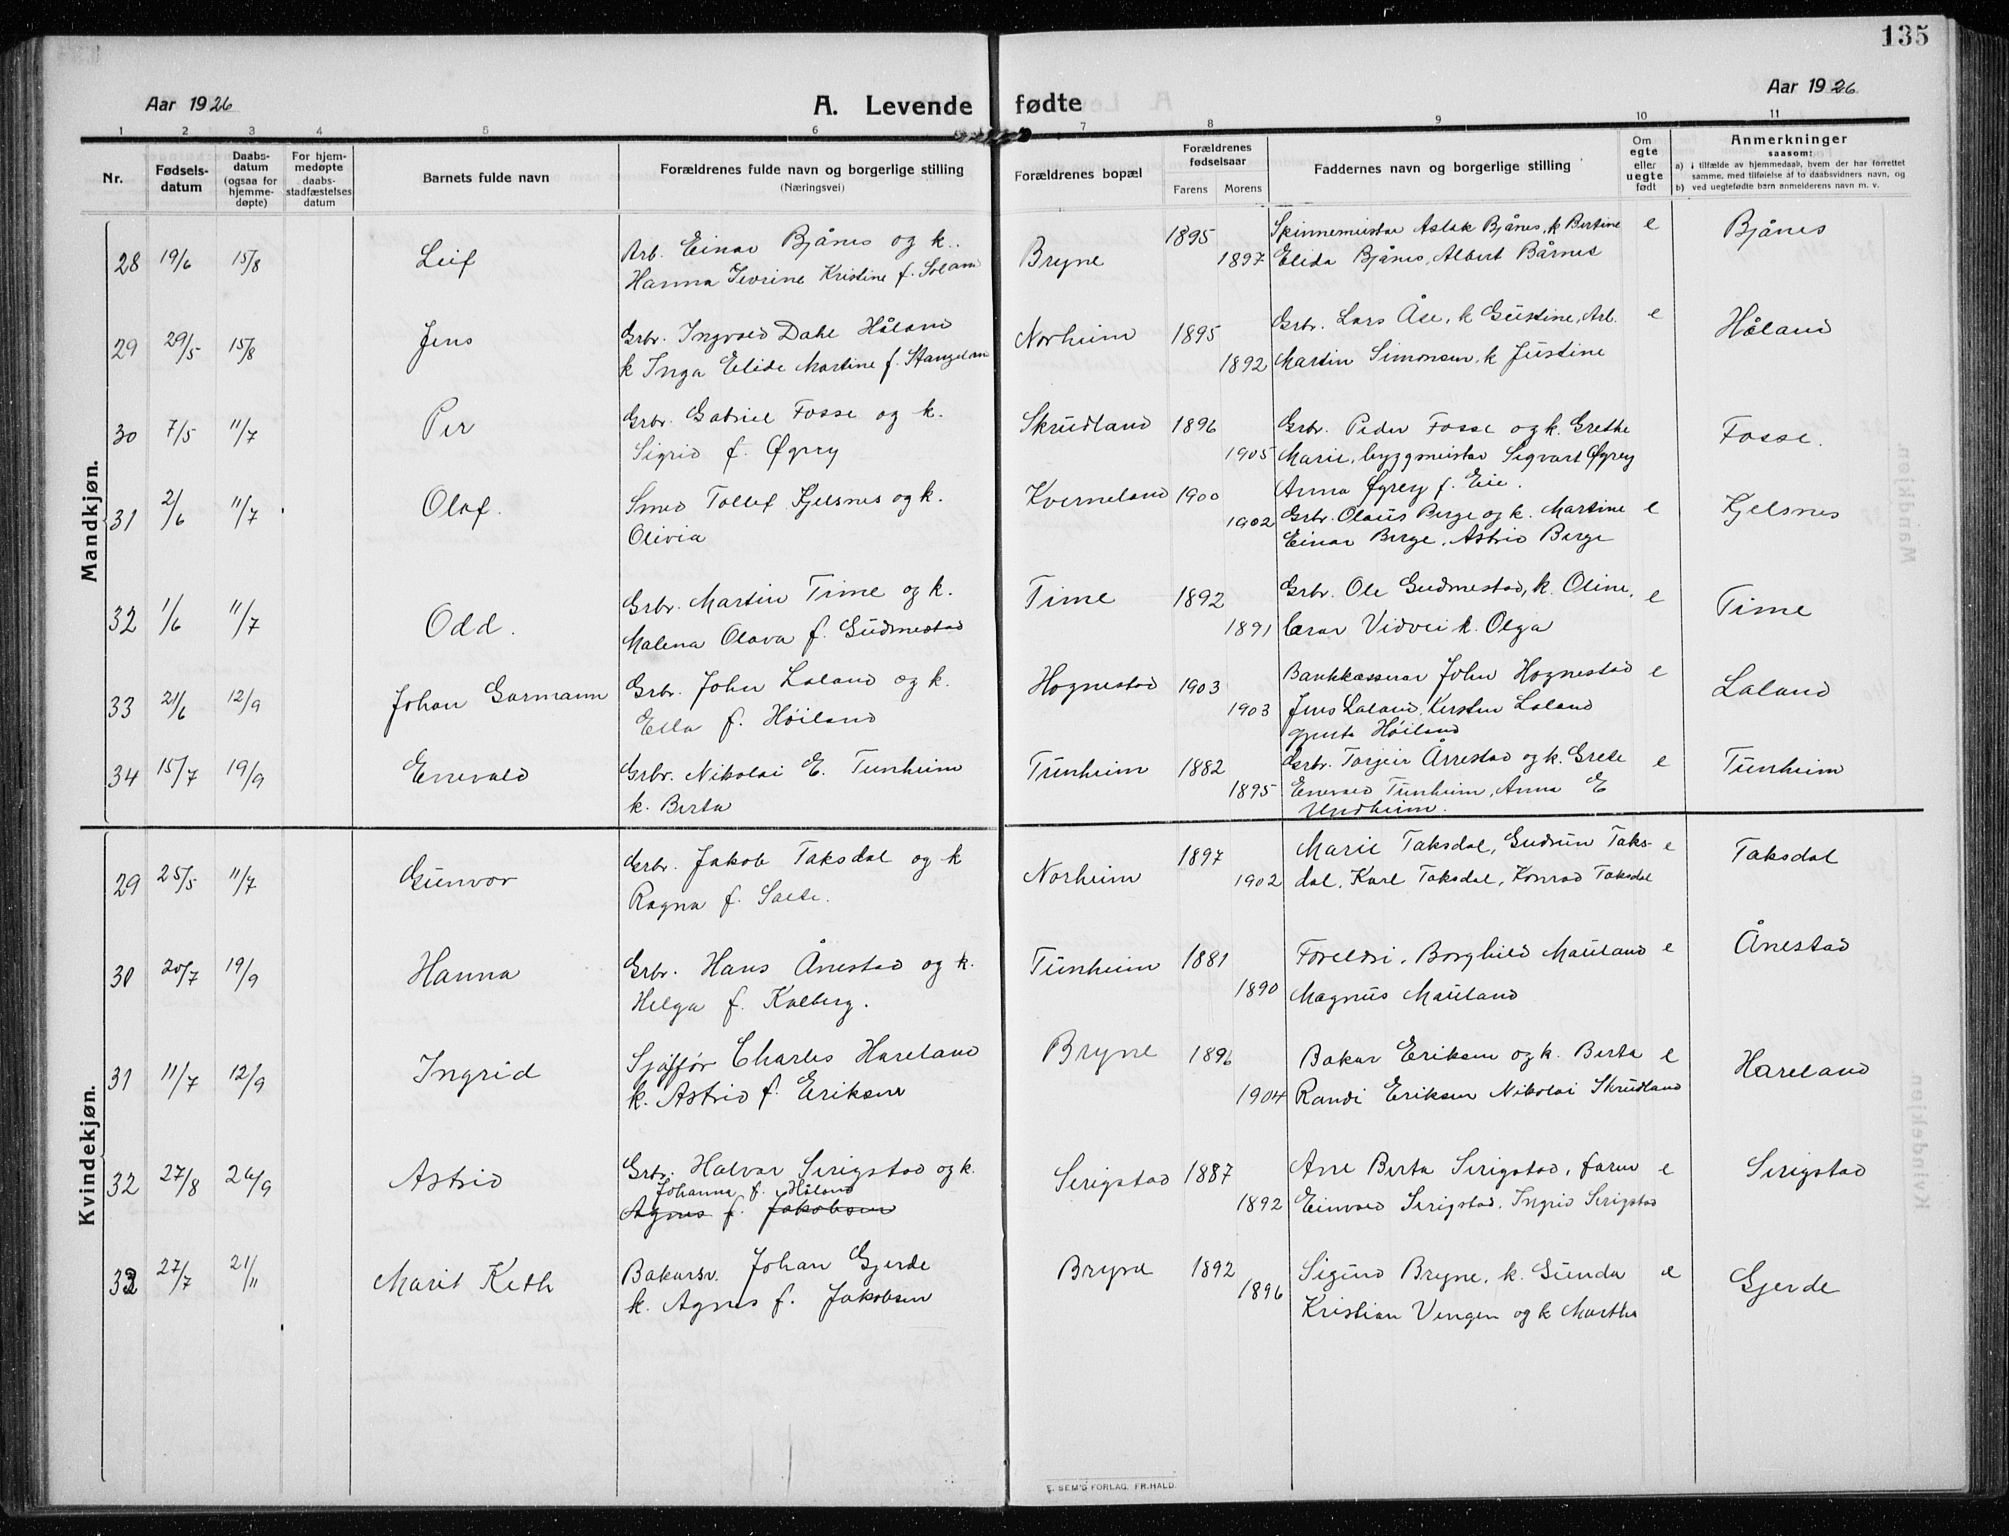 135
Aar 1926
A. Levende fødte
Aar 1926
1 2 3 4 5 6 7 8 9 10 11
Nr.
Fødsels-
datum
Daabs-
datum
(ogsaa for
hjemme-
døpte)
For hjem-
medøpte
daabs-
stadfæstelses
datum
Barnets fulde navn
Forældrenes fulde navn og borgerlige stilling
(Næringsvei)
Forældrenes bopæl
Forældrenes
fødselsaar
Farens Morens
Faddernes navn og borgerlige stilling
Om
egte
eller
uegte
født
Anmerkninger
saasom:
a) i tilfælde av hjemmedaab, hvem der har forrettet
samme, med tilføielse af to daabsvidners navn, og
b) ved uegtefødte barn anmelderens navn m. v.
Mandkjøn.
28 19/6 15/8 Leif
Arb. Einar Bjånes og k.
Hanna Severine Kristine f. Soland
Bryne 1895
1897
Spinnemeistar Aslak Bjånes, k Bertine
Elida Bjånes, Albert Bårnes
e Bjånes
29 29/5 15/8 Jens
Grbr. Ingvald Dahl Håland
k Inga Elide Martine f. Stangeland
Norheim 1895
1892
Grbr. Lars Åse, k Gustine, Arb.
Martin Simonsen, k Justine
e Håland
30 7/5 11/7 Per
Grbr. Gabriel Fosse og k.
Sigrid f. Øgrey
Skrudland 1896
1905
Grbr. Peder Fosse og k. Grethe
Marie, byggmeistar Sigvart Øgrey
Anna Øgrey f. Eie.
Fosse.
31 2/6 11/7 Olaf.
Smed Tollef Fjelsnes og k.
Olivia
Kverneland 1900
1902
Grbr. Olaus Berge og k. Martine
Einar Berge, Astrid Berge
e Fjelsnes
32 1/6 11/7 Odd.
Grbr. Martin Time og k.
Malena Olava f. Gudmestad
Time 1892
1891
Grbr. Ole Gudmestad, k. Oline,
Lærar Vidvei k. Olga
e Time
33 21/6 12/9 Johan Garmann
Grbr. John Laland og k.
Ella f. Høiland
Hognestad 1903
1903
Bankkasserar John Hognestad
Jens Laland, Kirsten Laland
Høiland
e Laland
34 15/7 19/9 Enevald
Grbr. Nikolai E. Tunheim
k. Berta
Tunheim 1882
1895
Grbr. Torgeir Årrestad og k. Grete
Enevald Tunheim, Anna E
Undheim.
e Tunheim
Kvindekjøn.
29 25/5 11/7 Gunvor
Grbr. Jakob Taksdal og k
Ragna f. Salte.
Norheim 1897
1902
Marie Taksdal, Gudrun Taks-
dal, Karl Taksdal, Konrad Taksdal
e Taksdal
30 20/7 19/9 Hanna
Grbr. Hans Ånestad og k.
Helga f. Kalberg.
Tunheim 1881
1890
Foreldri, Borghild Mauland
Magnus Mauland
e Ånestad
31 11/7 12/9 Ingrid
Sjåffør Charles Hareland
k. Astrid f. Eriksen
Bryne 1896
1904
Bakar Eriksen og k. Berta
Randi Eriksen Nikolai Skrudland
e Hareland
32 27/8 26/9 Astrid
Grbr. Halvar Serigstad og k.
Johanna f. Håland
Agnes f. Jakobsen
Serigstad 1887
1892
Ane Berta Serigstad, faren
Einvald Serigstad, Ingrid Serigstad
e Serigstad
33 27/7 21/11 Marit Keth
Bakarsv. Johan Gjerde
k. Agnes f. Jakobsen
Bryne 1892
1896
Sigurd Bryne, k. Gunda
Kristian Vengen og k Martha
e Gjerde
E. SEM'S FORLAG. FR.HALD